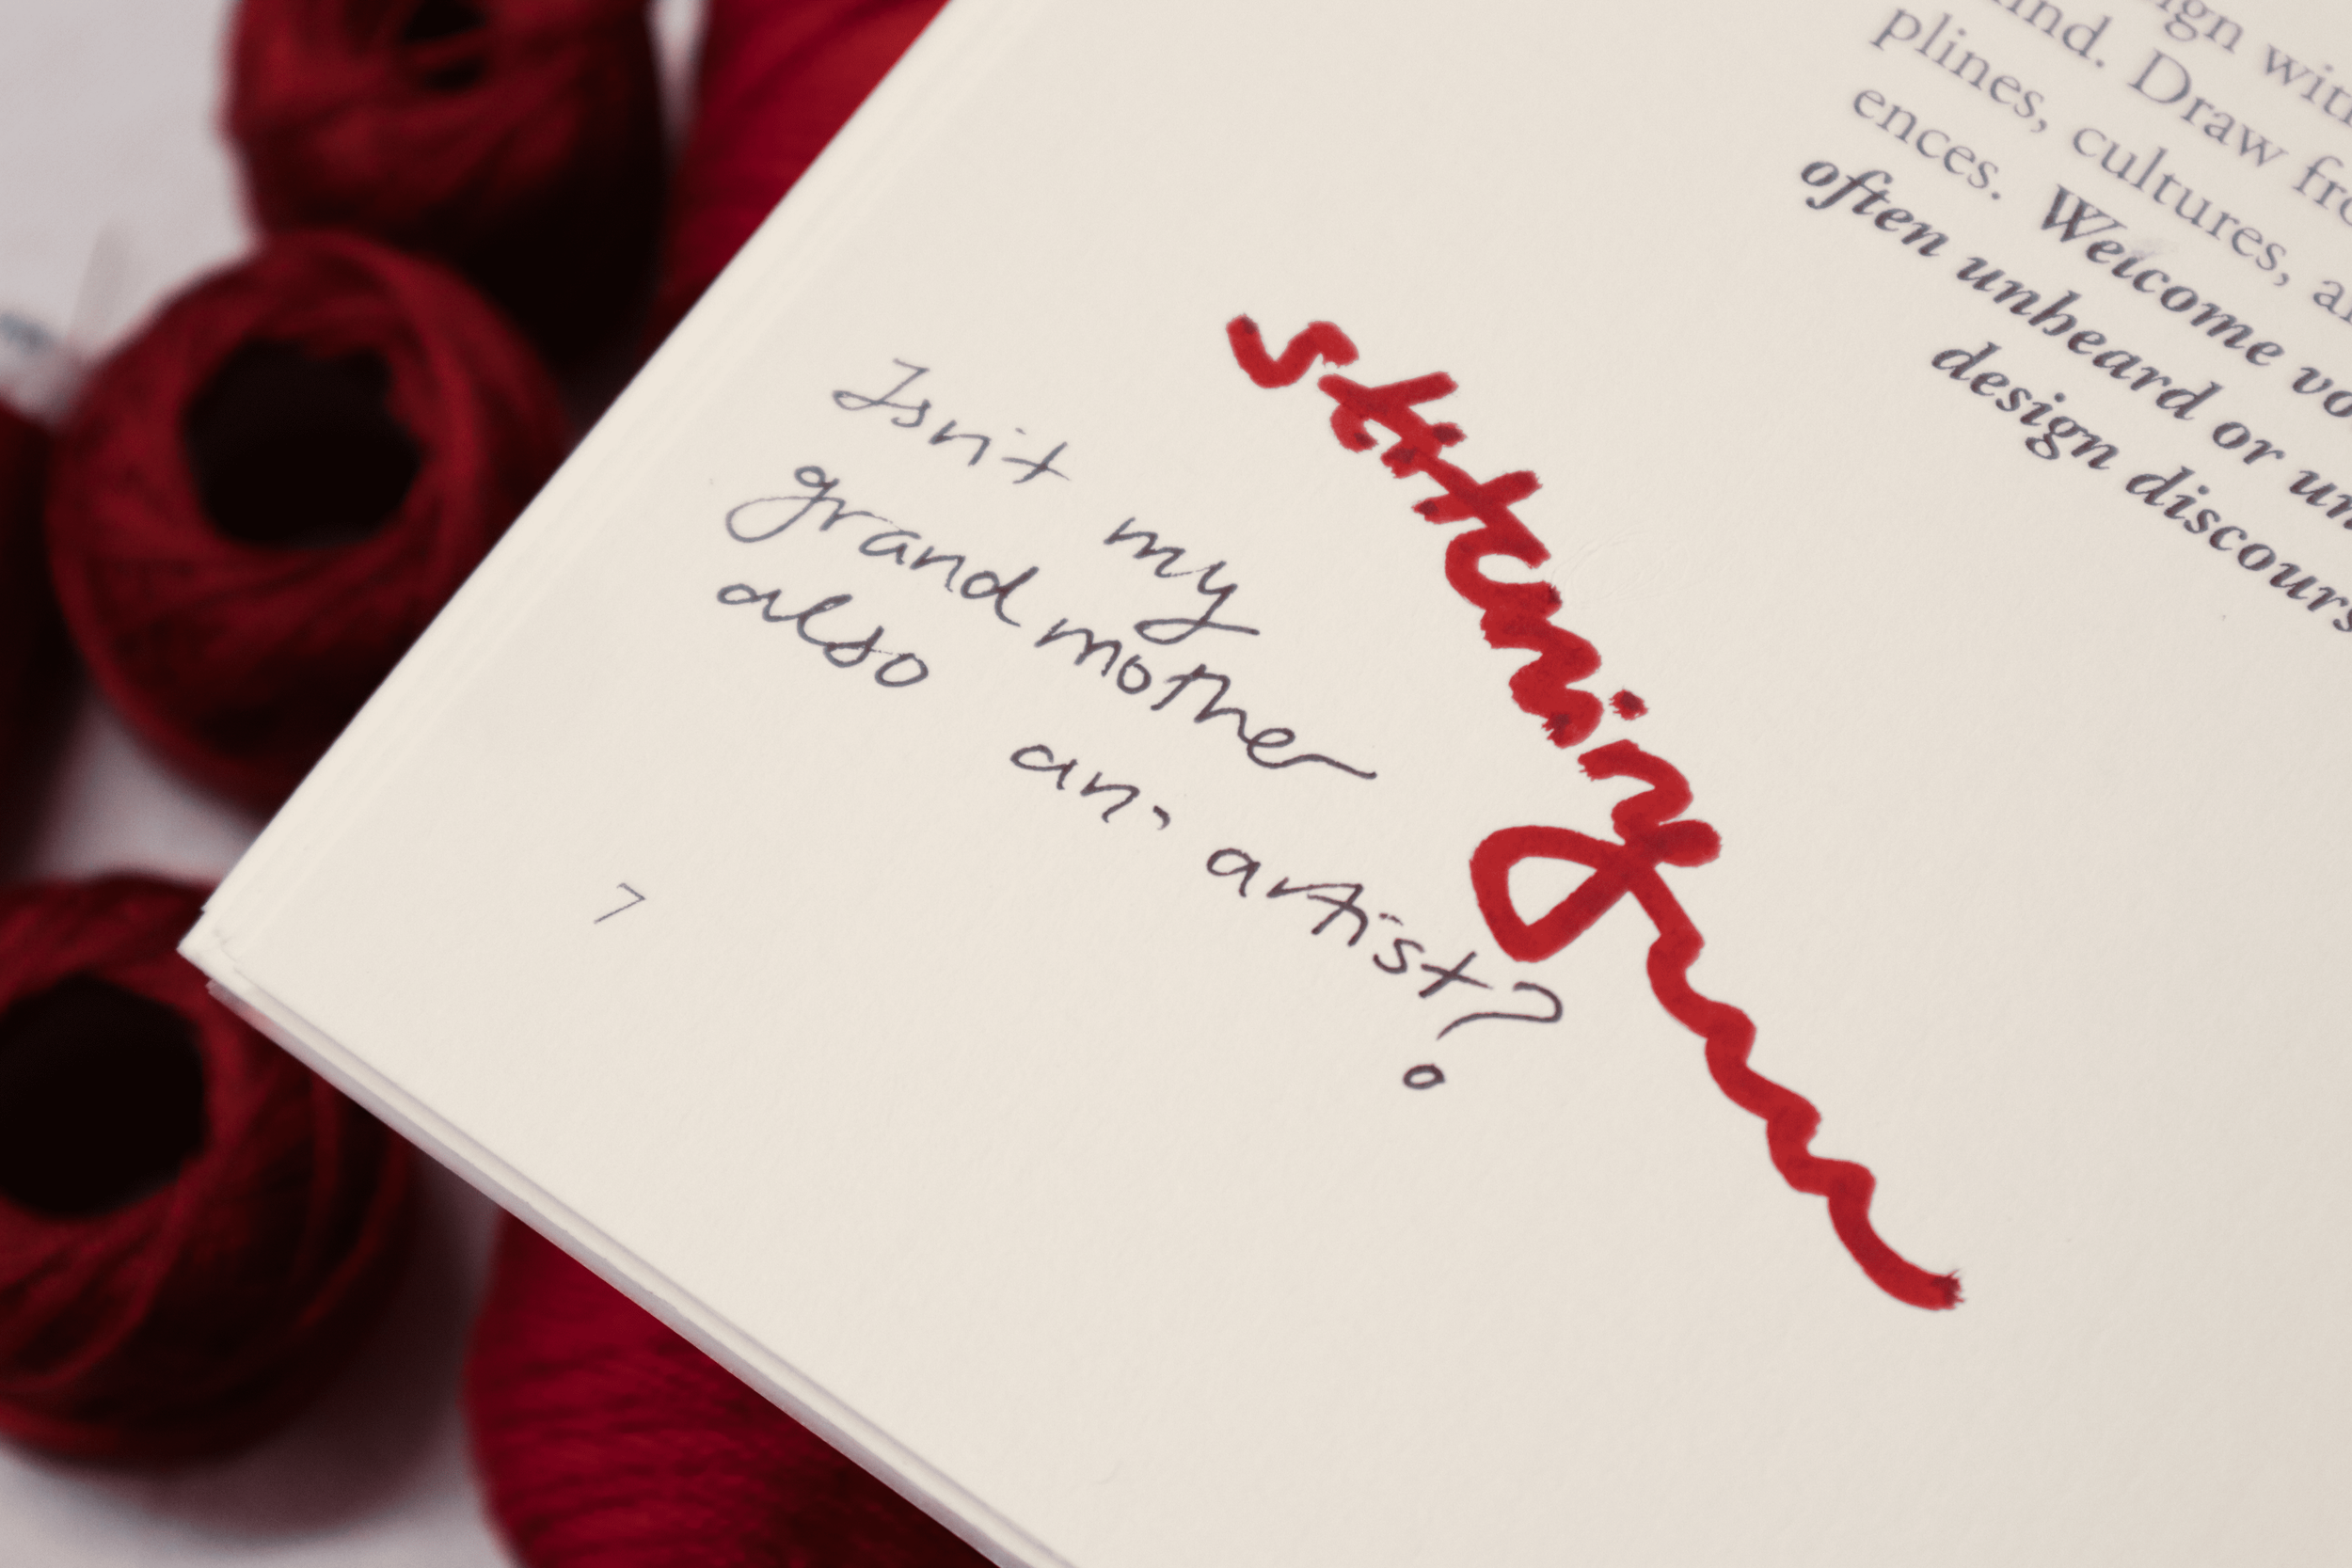 ign with
ind. Draw fro
plines, cultures, a
ences. Welcome vo
often unheard or un
design discours
stitching
Isn't my
grandmother
also an artist?
7